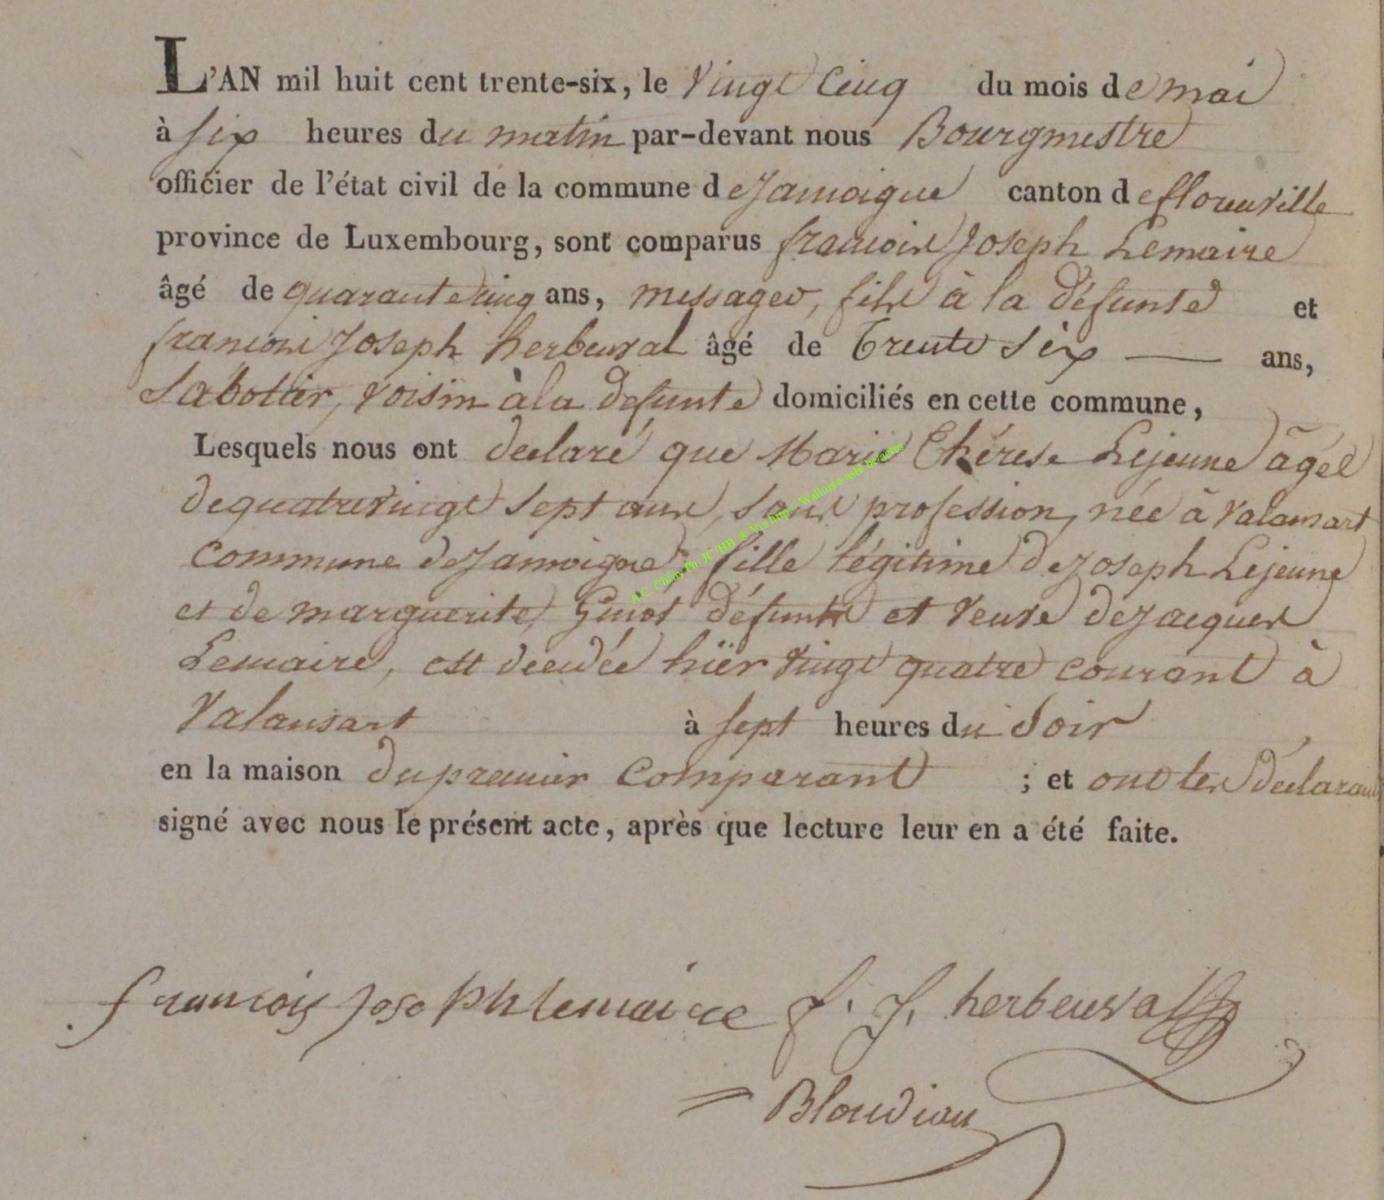 L'AN mil huit cent trente-six, le vingt cinq du mois de mai
à six heures du matin par-devant nous Bourgmestre
officier de l'état civil de la commune de Jamoigne canton de florenville
province de Luxembourg, sont comparus francois Joseph Lemaire
âgé de quarante cinq ans, messager, fils à la défunte et
francois Joseph herbeuval âgé de Trente six ans,
Sabotier, voisin à la defunte domiciliés en cette commune,
Lesquels nous ont declaré que Marie Thérese Lejeune âgée
de quatre vingt sept ans, sans profession, née à valansart
commune de Jamoigne, fille légitime de Joseph Lejeune
et de marguerite Guiot défunts et veuve de Jacques
Lemaire, est decedée hïer vingt quatre courant à
Valansart à sept heures du Soir
en la maison du premier comparant ; et ont les déclarans
signé avec nous le présent acte, après que lecture leur en a été faite.
francois Joseph lemaire f. J. herbeuval
Blondiau